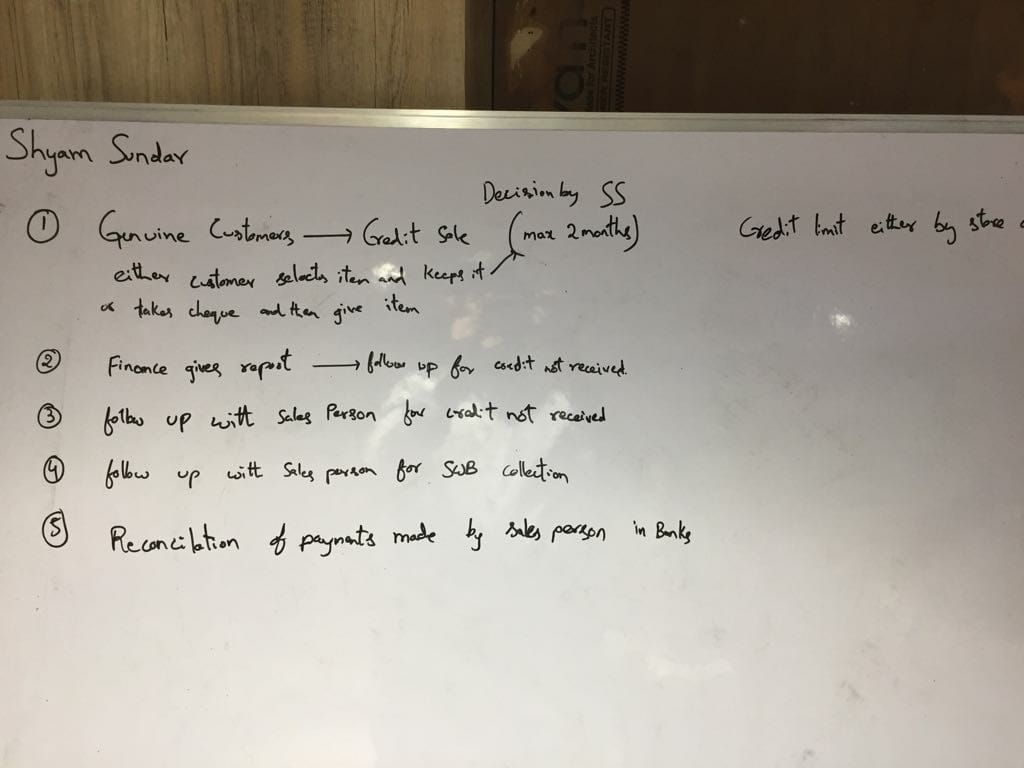 for Architects
RESISTANT
Shyam Sundar
Decision by SS
① Genuine Customers → Credit Sale (max 2 months) Credit limit either by store
either customer selects item and keeps it
or takes cheque and then give item
② Finance gives report → follow up for credit not received.
③ follow up with Sales Person for credit not received
④ follow up with Sales person for SWB collection
⑤ Reconcilation of payments made by sales person in Banks